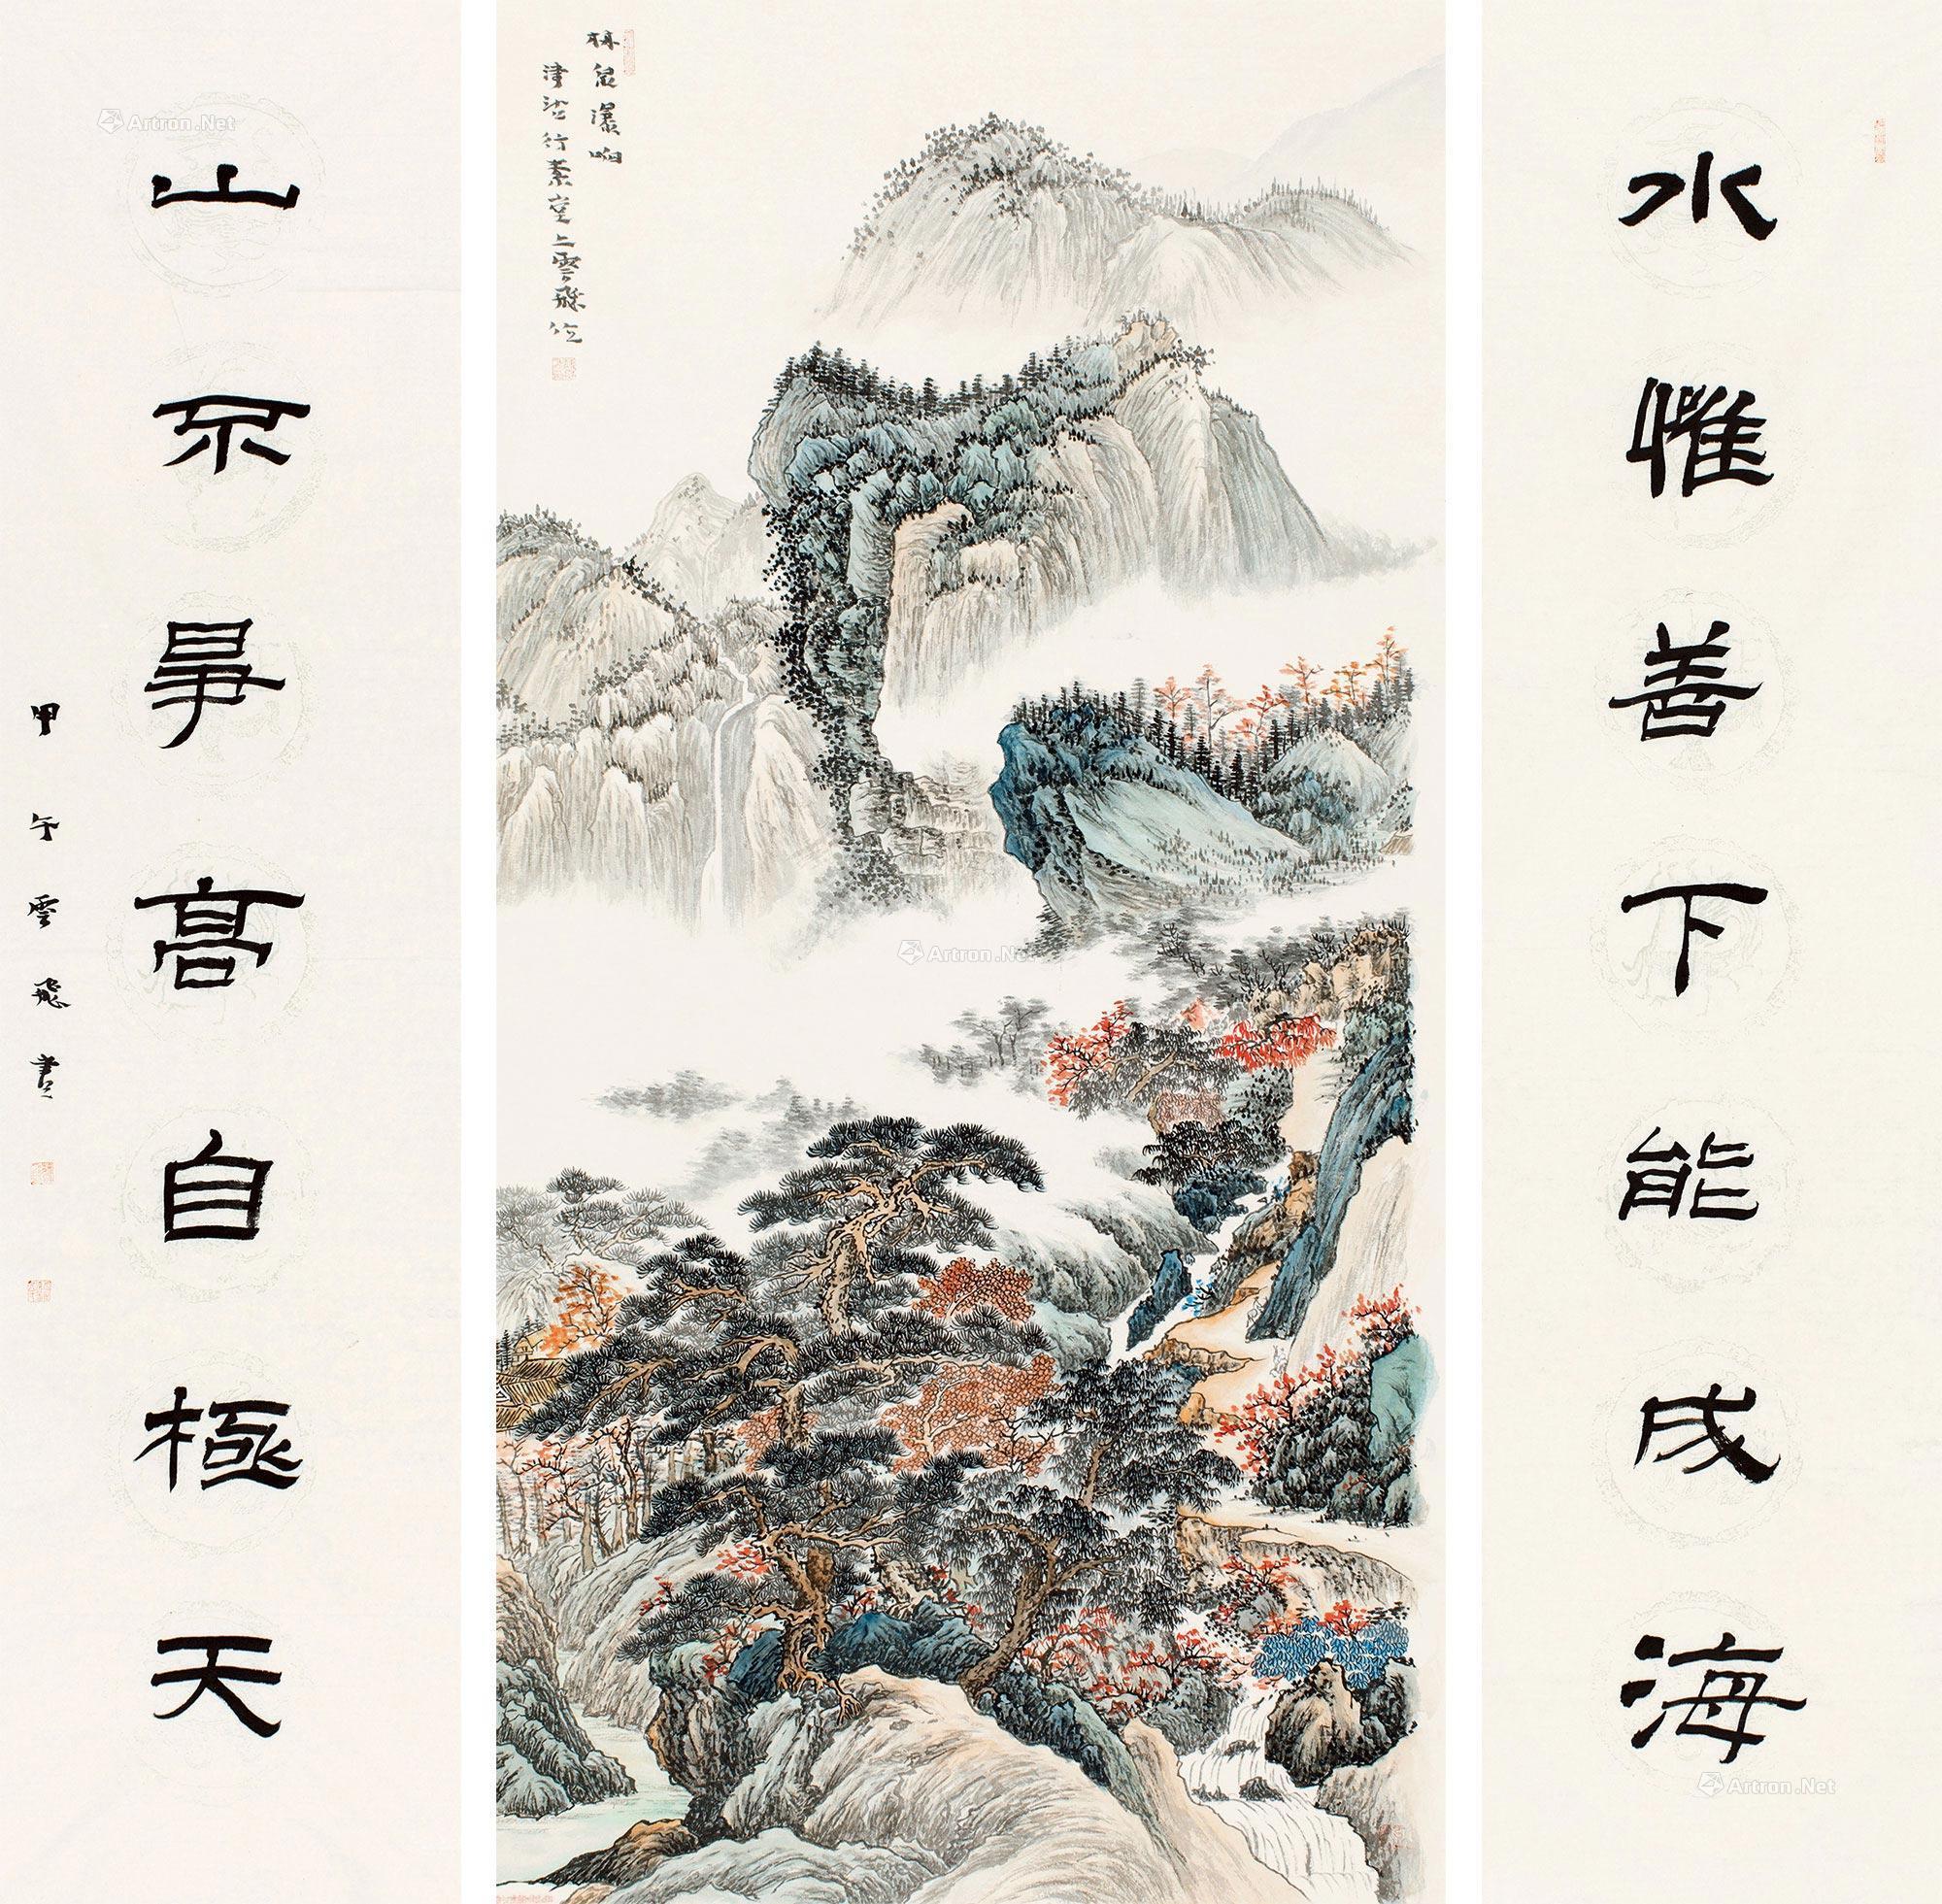 水惟善下能成海
林泉瀑响
津沽行素堂上雲飛作
山不爭高自極天
甲午雲飛書
Artron.Net
Artron.Net
Artron.Net